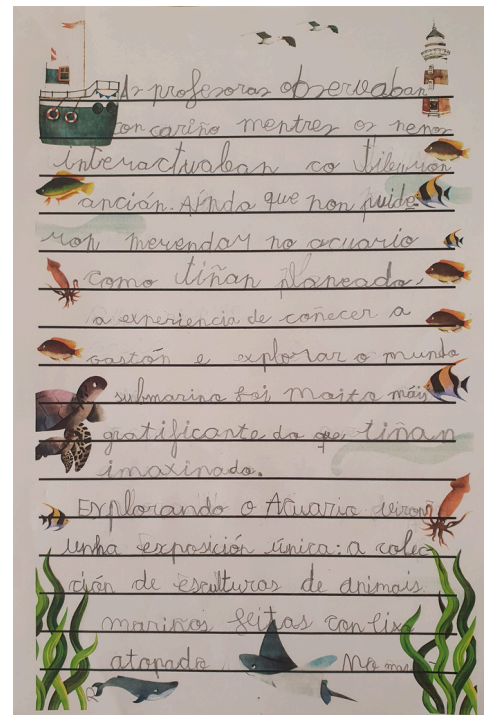 As profesoras observaban
con cariño mentres os nenos
interactuaban co tiburón
ancián. Aínda que non puide
ron merendar no acuario
como tiñan planeado,
a experiencia de coñecer a
Gastón e explorar o mundo
submarino foi moito máis
gratificante do que tiñan
imaxinado.
Explorando o Acuario viron
unha exposición única: a colec
ción de esculturas de animais
mariños feitas con lixo
atopado No mar